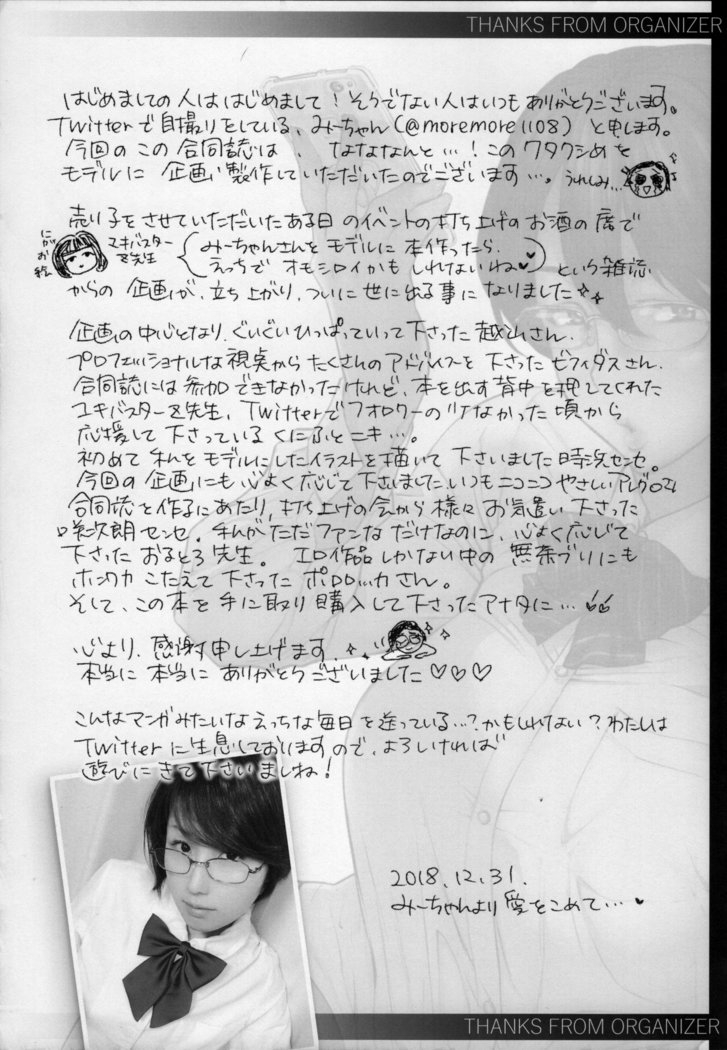 THANKS FROM ORGANIZER
はじめましての人ははじめまして！そうでない人はいつもありがとうございます。
Twitterで自撮りをしている、みーちゃん(@moremore1108)と申します。
今回のこの合同誌は、なななんと…！このワタクシめを
モデルに企画、製作していただいたのでございます…。うれしみ…
売り子をさせていただいたある日のイベントの打ち上げのお酒の席で
にがお絵
ユキバスターZ先生
みーちゃんさんをモデルに本作ったら、
えっちでオモシロイかもしれないね♥♥
という雑談
からの企画が、立ち上がり、ついに世に出る事になりました
企画の中心となり、ぐいぐいひっぱっていって下さった越山さん、
プロフェッショナルな視点からたくさんのアドバイスを下さったビフィダスさん、
合同誌には参加できなかったけれど、本を出す背中を押してくれた
ユキバスターZ先生、Twitterでフォロワーの少なかった頃から
応援して下さっているくにふとニキ…。
初めて私をモデルにしたイラストを描いて下さいました時浜センセ。
今回の企画にも心よく応じて下さいましたいつもニコニコやさしい
合同誌を作るにあたり、打ち上げの会から様々お気遣い下さった
咲次朗センセ。私がただファンなだけなのに、心よく応じて
下さったおるとろ先生。エロ作品しかない中の無茶ブリにも
ホンワカこたえて下さったポロロッカさん。
そして、この本を手に取り購入して下さったアナタに…
心より、感謝申し上げます
本当に本当にありがとうございました♡♡♡
こんなマンガみたいなえっちな毎日を送っている…？かもしれない？わたしは
Twitterに生息しておりますので、よろしければ
遊びにきて下さいましね！
2018.12.31.
みーちゃんより愛をこめて…♥
THANKS FROM ORGANIZER